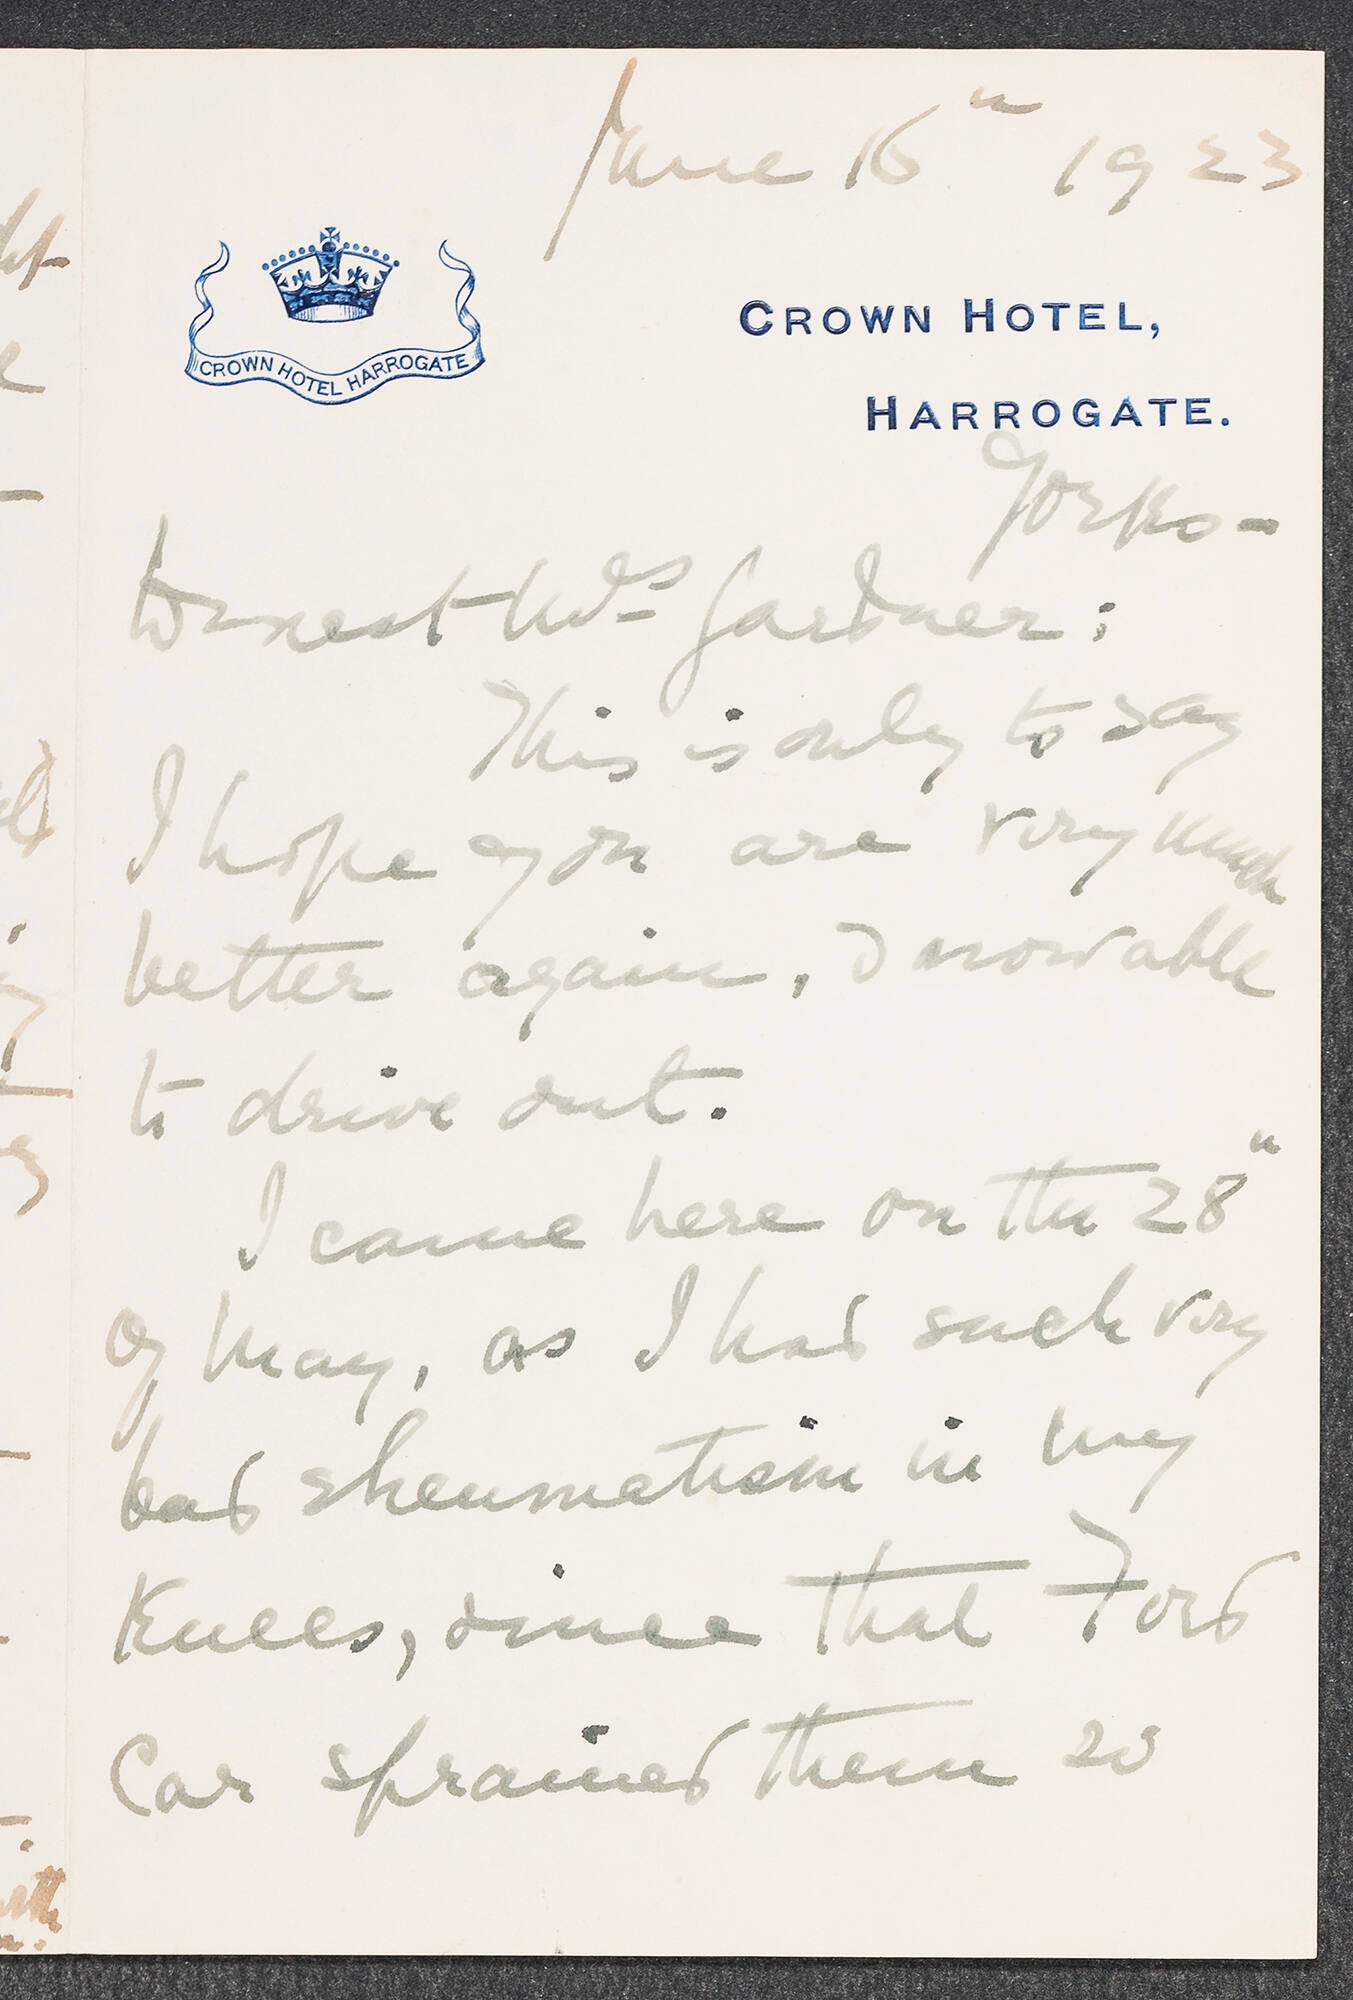 June 16th 1923
CROWN HOTEL HARROGATE
CROWN HOTEL,
HARROGATE.
Yorks-
Dearest Mrs Gardner:
This is only to say
I hope you are very much
better again, & now able
to drive out.
I came here on the 28th
of May, as I had such very
bad rheumatism in my
Knees, since that Ford
Car sprained them so